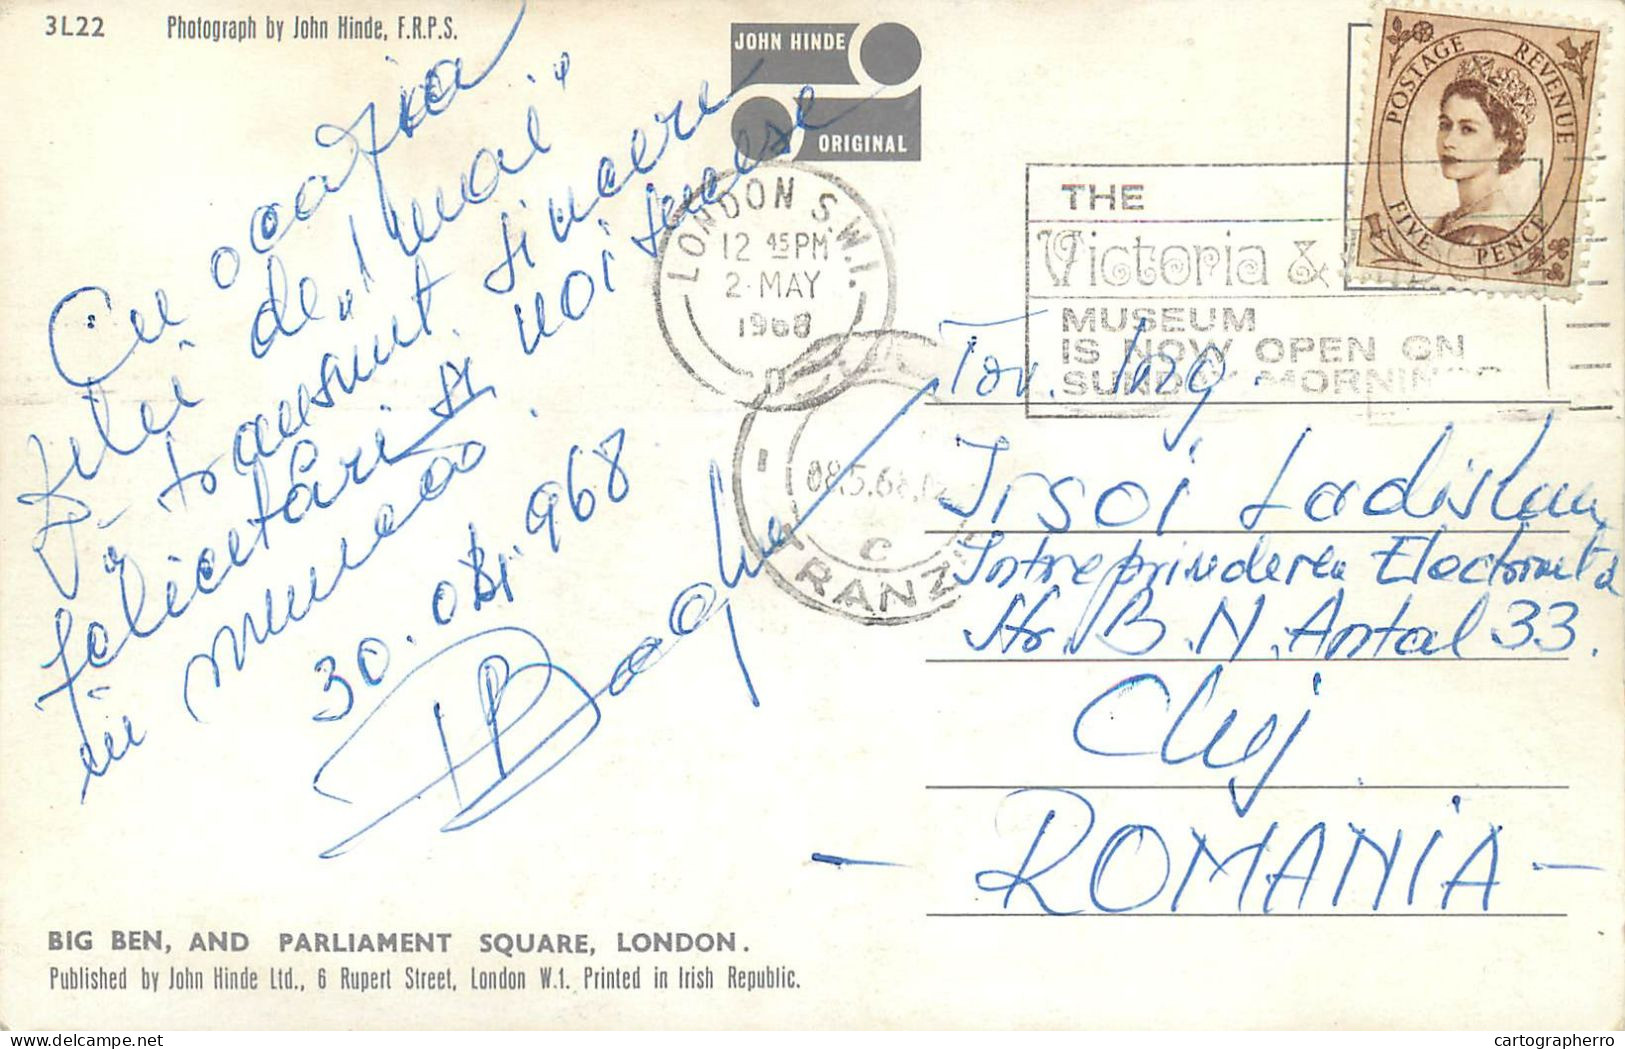 3L22 Photograph by John Hinde, F.R.P.S.
JOHN HINDE
ORIGINAL
POSTAGE REVENUE
FIVE PENCE
LONDON S.W.1.
12 45 PM
2 MAY
1968
THE
Victoria &
MUSEUM
IS NOW OPEN ON
SUNDAY MORNINGS
08.5.68
C
TRANZIT
Cu ocazia
zilei de „1 mai”
vă transmit sincere
felicitări și noi succese
în muncă.
30.04.968
Tov. Ing.
Irsai Ladislau
Intreprinderea
Str. B.N. Antal 33.
Cluj
— ROMANIA —
BIG BEN, AND PARLIAMENT SQUARE, LONDON.
Published by John Hinde Ltd., 6 Rupert Street, London W.1. Printed in Irish Republic.
cartographerro